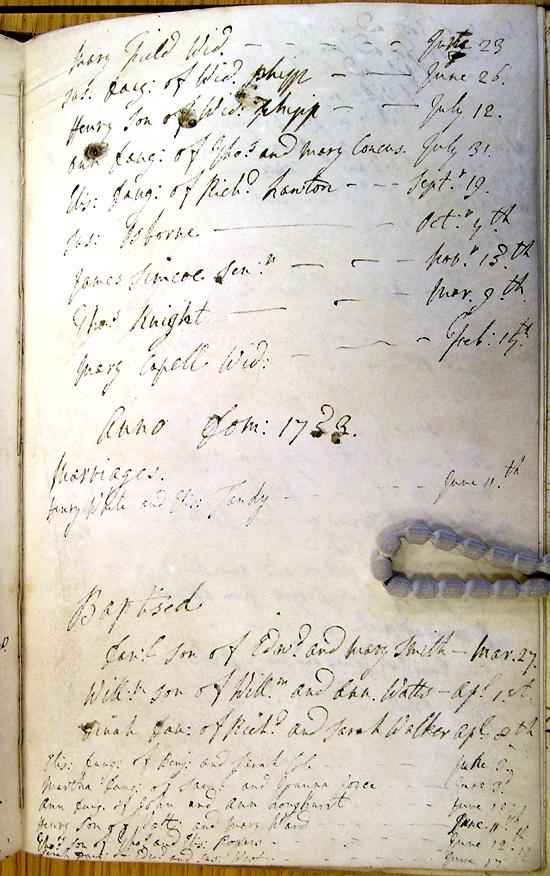 Mary Field Wid. June 23
Sus: Daug: of Wid. Phipp June 26.
Henry Son of Wid: Phipp July 12.
Ann Daug: of Tho:s and Mary July 31
Elis: Daug: of Rich:d Lawton Sept:r 19.
Sus: Osborne Oct:r th
James Simcoe Sen:r Nov:r 13th
Tho:s Knight Mar. 9th
Mary Capell Wid: Feb: th
Anno Dom: 1733.
Marriages.
Henry White and Elis: Tandy June 11.th
Baptised
son of Edw:d and Mary Smith Mar. 27.
Will:m son of Will:m and Ann Watts Ap:l 1st
Dinah Dau: of Rich:d and Sarah Walker Ap:l 8th
Elis: Daug: of Benj: and Sarah
Martha Daug: of Sam:l and Joanna Joyce June
Ann Daug. of John and Ann Longhurst June
Henry Son of Matt: and Mary Ward June th
Tho:s Son of Tho: and Elis: June 12
Sarah Daug: Edw:d and Sus: West June 17